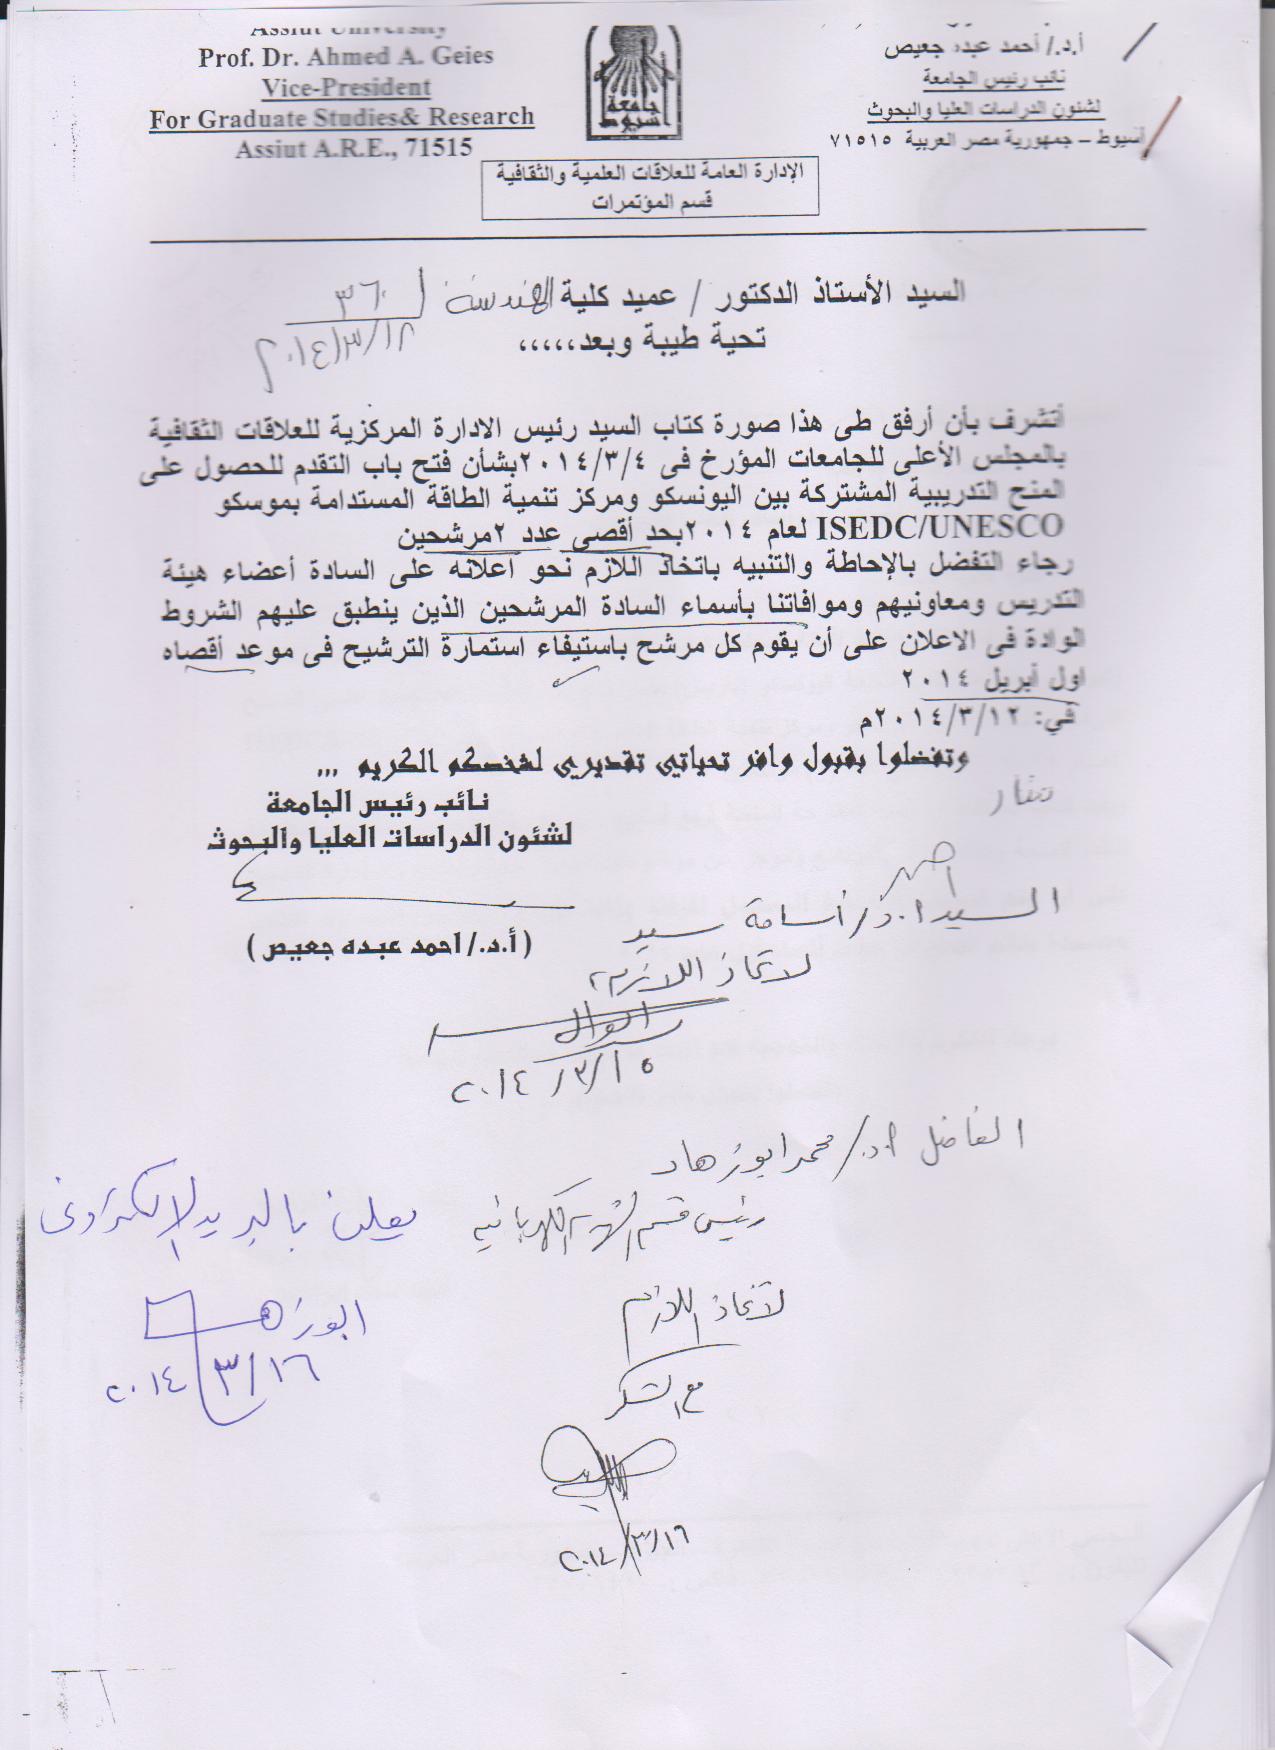 Assiut University
Prof. Dr. Ahmed A. Geies
Vice-President
For Graduate Studies& Research
Assiut A.R.E., 71515
جامعة أسيوط
أ.د./ أحمد عبده جعيص
نائب رئيس الجامعة
لشئون الدراسات العليا والبحوث
أسيوط – جمهورية مصر العربية ٧١٥١٥
الإدارة العامة للعلاقات العلمية والثقافية
قسم المؤتمرات
السيد الأستاذ الدكتور / عميد كلية الهندسة
٣٦٠
٢٠١٤/٣/١٢
تحية طيبة وبعد،،،،،
أتشرف بأن أرفق طى هذا صورة كتاب السيد رئيس الادارة المركزية للعلاقات الثقافية
بالمجلس الأعلى للجامعات المؤرخ فى ٢٠١٤/٣/٤بشأن فتح باب التقدم للحصول على
المنح التدريبية المشتركة بين اليونسكو ومركز تنمية الطاقة المستدامة بموسكو
ISEDC/UNESCO لعام ٢٠١٤بحد أقصى عدد ٢مرشحين
رجاء التفضل بالإحاطة والتنبيه باتخاذ اللازم نحو اعلانه على السادة أعضاء هيئة
التدريس ومعاونيهم وموافاتنا بأسماء السادة المرشحين الذين ينطبق عليهم الشروط
الوادة فى الاعلان على أن يقوم كل مرشح باستيفاء استمارة الترشيح فى موعد أقصاه
اول أبريل ٢٠١٤
في: ٢٠١٤/٣/١٢م
وتفضلوا بقبول وافر تحياتي تقديرى لشخصكم الكريم ,,,
منار
نائب رئيس الجامعة
لشئون الدراسات العليا والبحوث
(أ.د./ احمد عبده جعيص)
السيد ا.د/ أسامة سيد
لاتخاذ اللازم
٢٠١٤/٣/١٥
الفاضل ا.د/ محمد ابوزهاد
رئيس قسم الهندسة الكهربائية
لاتخاذ اللازم
مع الشكر
٢٠١٤/٣/١٦
يعلن بالبريد الإلكترونى
ابوزهاد
٢٠١٤/٣/١٦